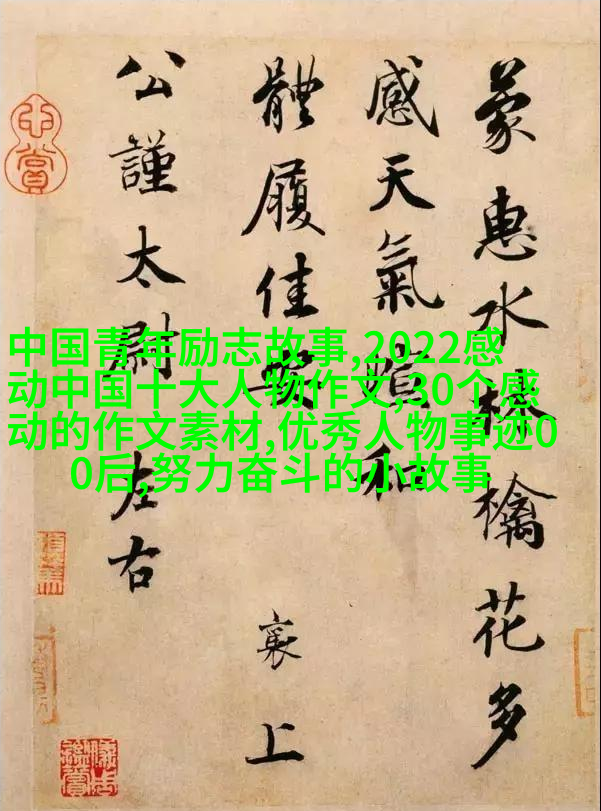 中国青年励志故事,2022感
动中国十大人物作文,30个感
动的作文素材,优秀人物事迹0
0后,努力奋斗的小故事
蒙惠水林檎花多
感天氣暄和
體履佳安 襄上
公謹太尉左右